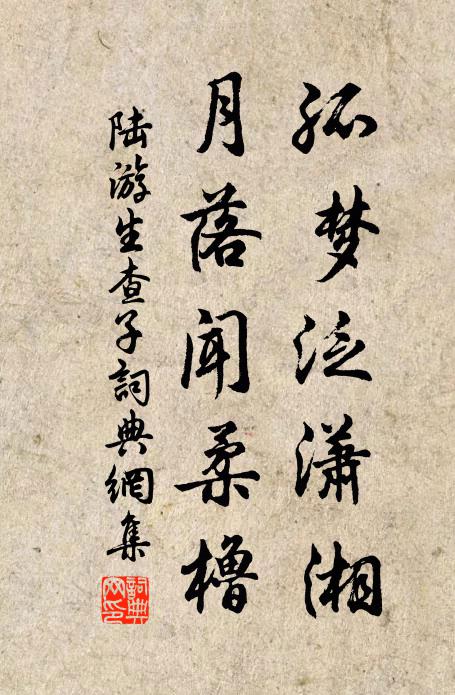 孤梦泛潇湘
月落闻柔橹
陆游生查子詞典網集
詞典网印